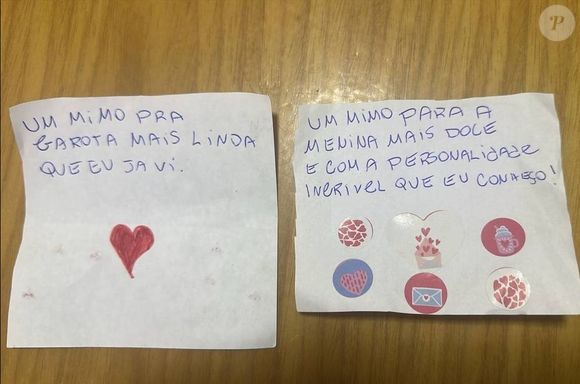 UM MIMO PRA
GAROTA MAIS LINDA
QUE EU JA VI.
UM MIMO PARA A
MENINA MAIS DOCE
E COM A PERSONALIDADE
INCRIVEL QUE EU CONHEÇO!
P